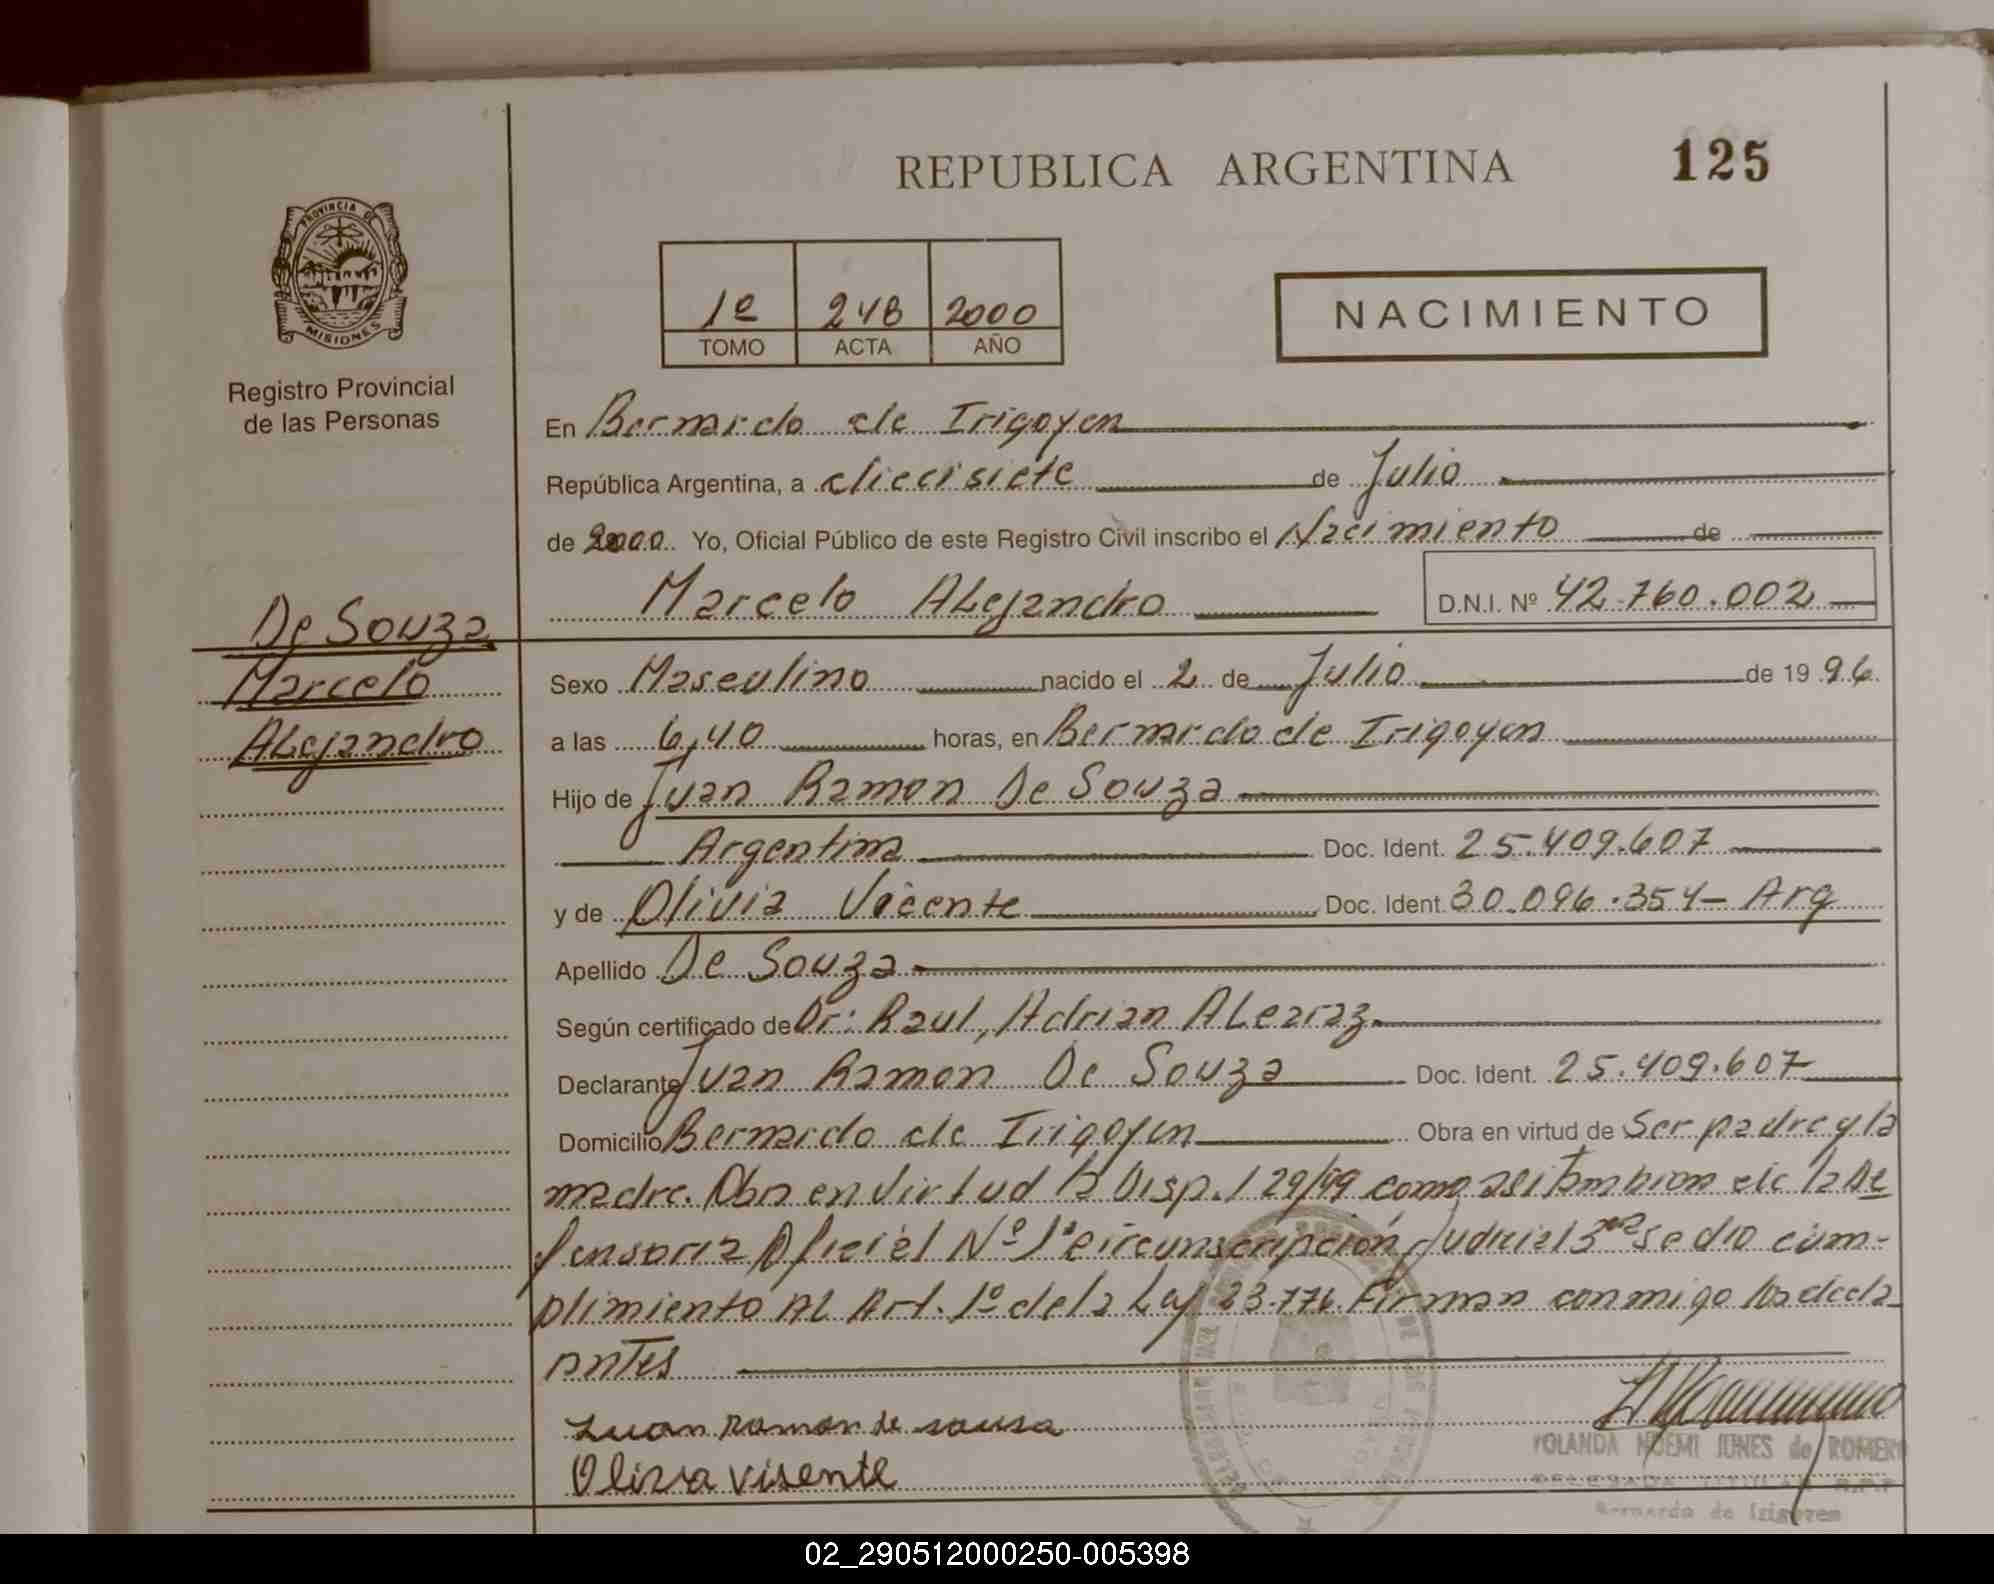 REPUBLICA ARGENTINA
125
PROVINCIA DE
MISIONES
Registro Provincial
de las Personas
1º 248 2000
TOMO ACTA AÑO
NACIMIENTO
En Bernardo de Irigoyen
República Argentina, a diecisiete de Julio
de 2000 Yo, Oficial Público de este Registro Civil inscribo el Nacimiento de
Marcelo Alejandro D.N.I. Nº 42.760.002
De Souza
Marcelo
Alejandro
Sexo Masculino nacido el 2 de Julio de 1996.
a las 6,40 horas, en Bernardo de Irigoyen
Hijo de Juan Ramon De Souza
Argentina Doc. Ident. 25.409.607
y de Olivia Vicente Doc. Ident. 30.096.354- Arg
Apellido De Souza
Según certificado de Dr: Raul, Adrian Alcaraz
Declarante Juan Ramon De Souza Doc. Ident. 25.409.607
Domicilio Bernardo de Irigoyen Obra en virtud de Ser padre y la
madre. Obra en virtud la Disp. 129/99 como asi tambien de la De
fensoria Oficial Nº 1ª circunscripción Judicial 3ra se dio cum-
plimiento AL Art. 1º de la Ley 23.776. Firman conmigo los decla
antes
Luan Ramon de sousa
Oliva visente
YOLANDA NOEMI de ROMERO
DELEGADA TITULAR R.P.P
Bernardo de Irigoyen
02_290512000250-005398